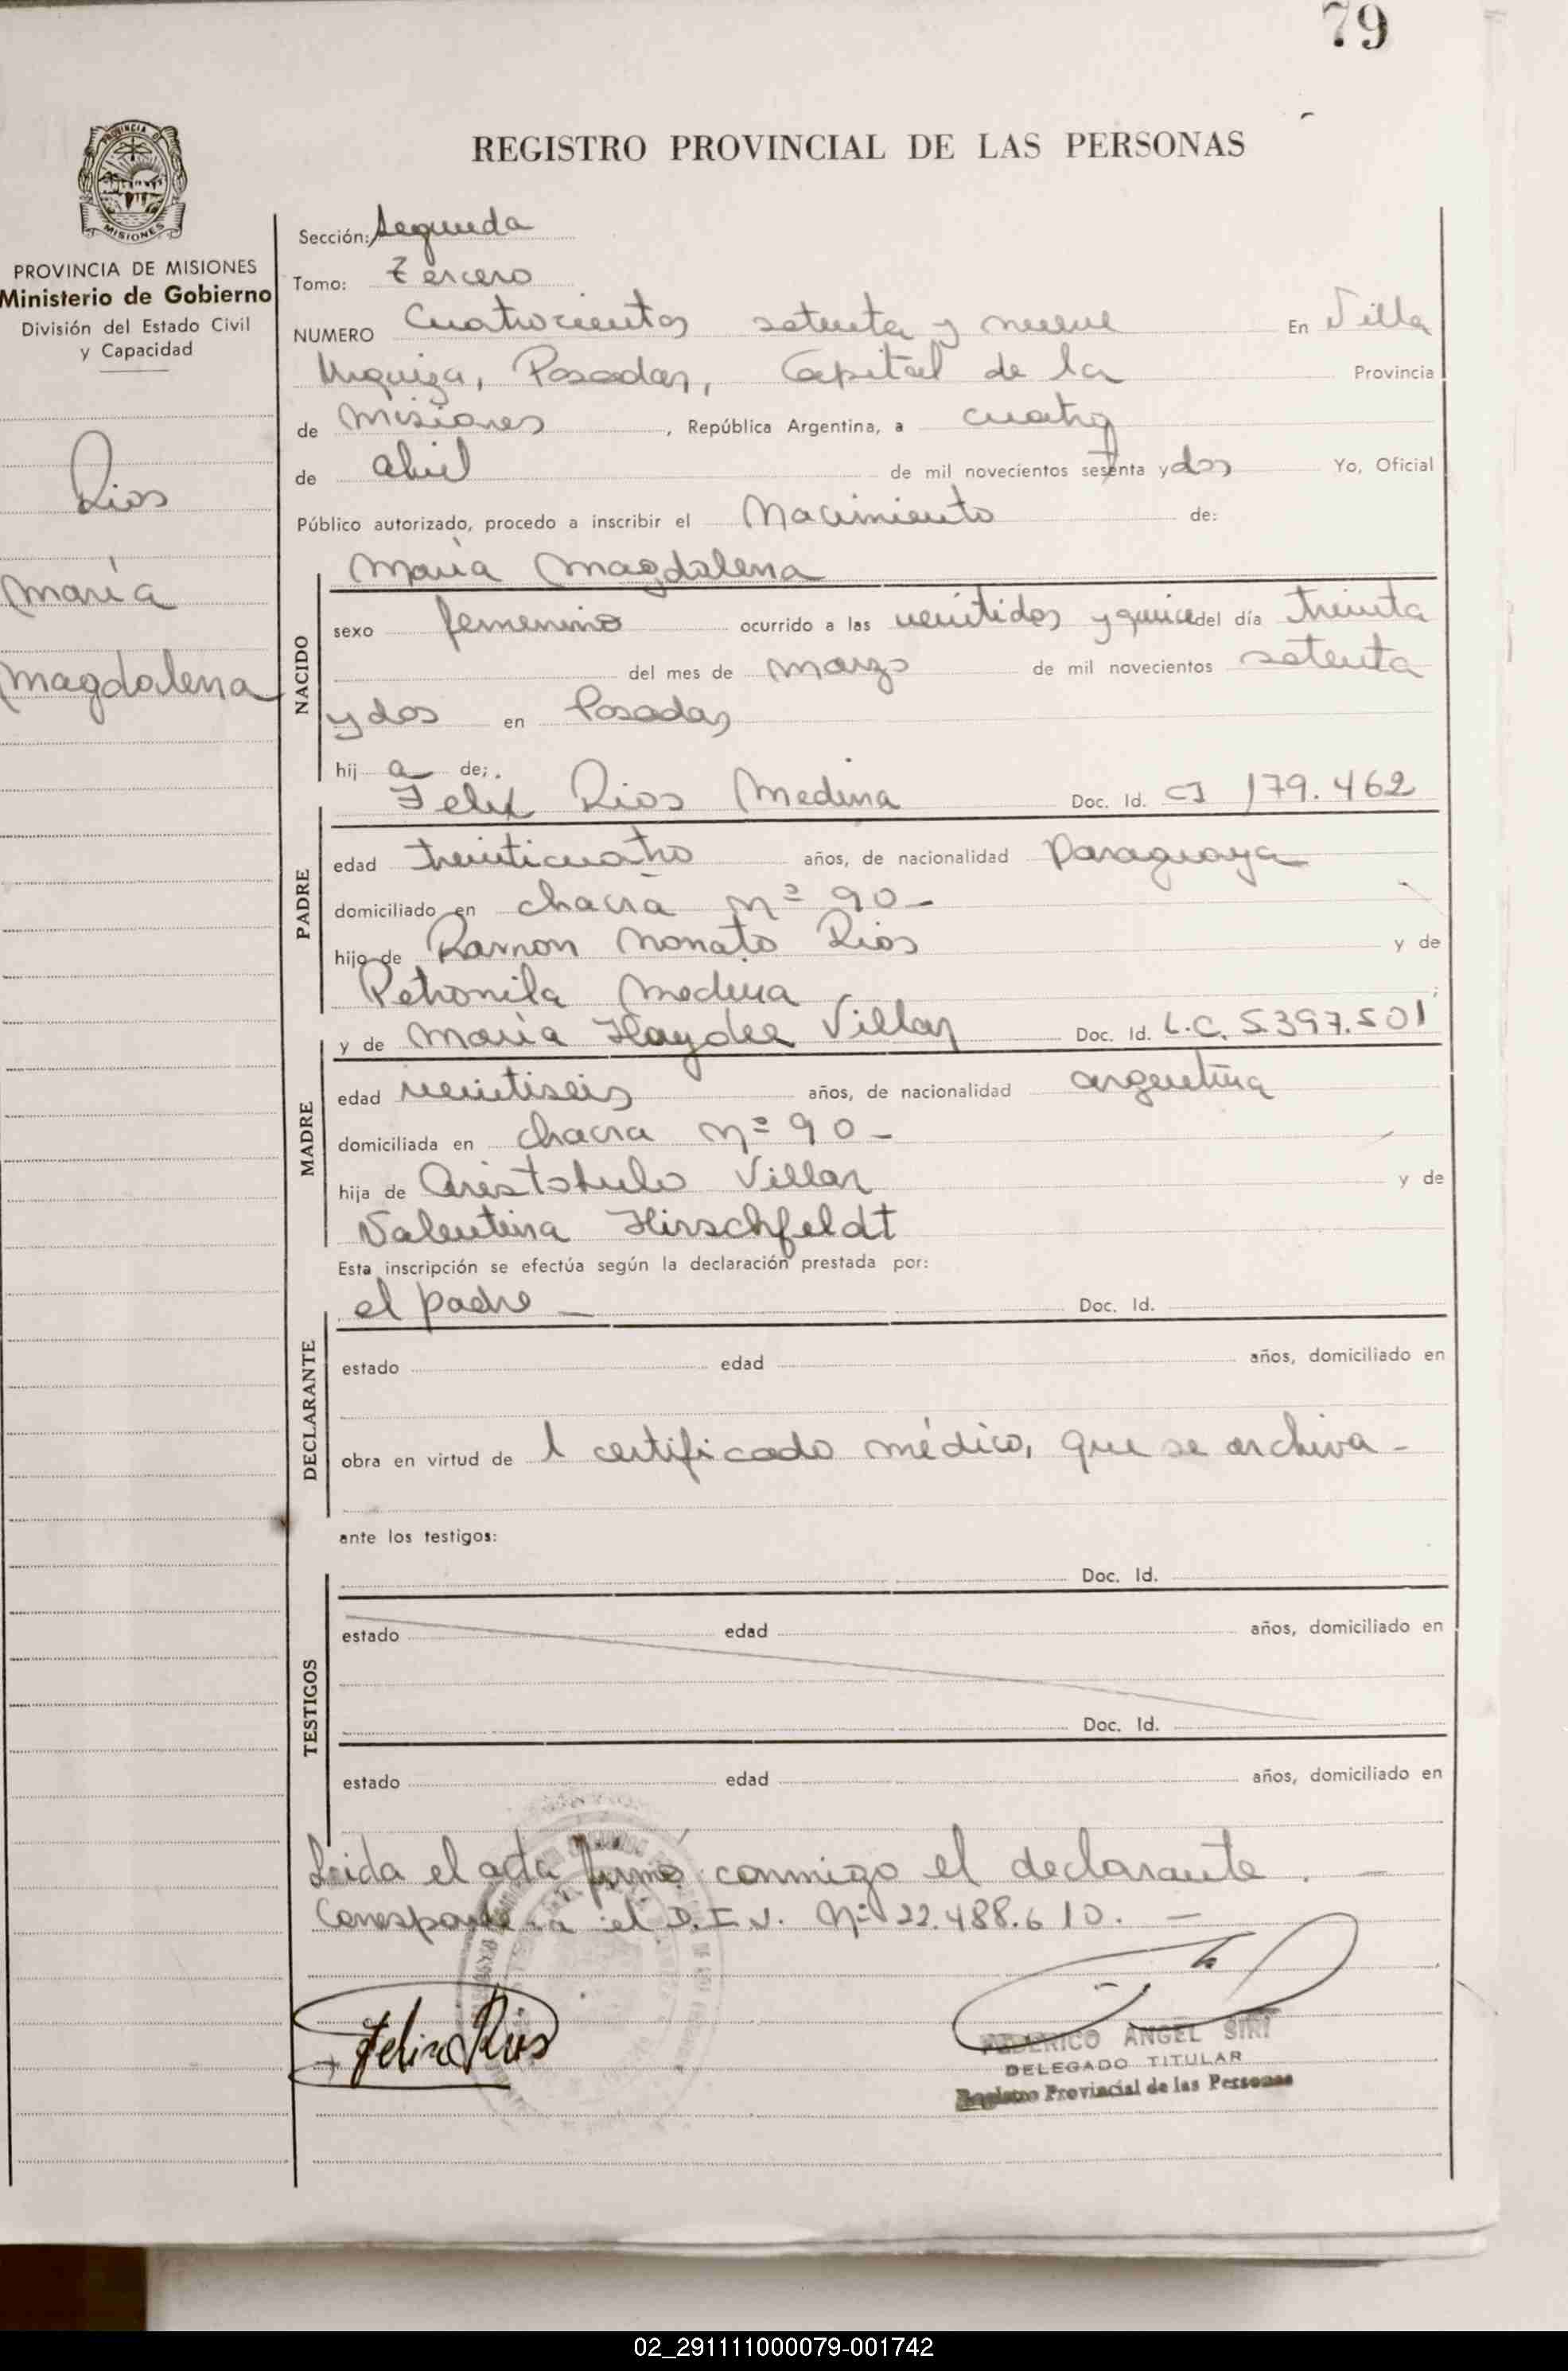 79
REGISTRO PROVINCIAL DE LAS PERSONAS
PROVINCIA DE MISIONES
Ministerio de Gobierno
División del Estado Civil
y Capacidad
Rios
María
Magdalena
Sección: Segunda
Tomo: Tercero
NUMERO Cuatrocientos setenta y nueve En Villa
Urquiza, Posadas, Capital de la Provincia
de Misiones, República Argentina, a cuatro
de abril de mil novecientos setenta y dos Yo, Oficial
Público autorizado, procedo a inscribir el Nacimiento de:
María Magdalena
NACIDO
sexo femenino ocurrido a las veintidos y quince del día treinta
del mes de marzo de mil novecientos setenta
y dos en Posadas
hij a de;.
Felix Rios Medina Doc. Id. CI 179.462
PADRE
edad treinticuatro años, de nacionalidad Paraguaya
domiciliado en chacra nº 90-
hijo de Ramon Nonato Rios y de
Petronila Medina
y de María Haydee Villar Doc. Id. L.C. 5.397.501
MADRE
edad veintiseis años, de nacionalidad argentina
domiciliada en chacra nº 90-
hija de Aristobulo Villar y de
Valentina Hirschfeldt
Esta inscripción se efectúa según la declaración prestada por:
el padre - Doc. Id.
DECLARANTE
estado edad años, domiciliado en
obra en virtud de 1 certificado médico, que se archiva-
ante los testigos:
Doc. Id.
TESTIGOS
estado edad años, domiciliado en
Doc. Id.
estado edad años, domiciliado en
Leida el acta firmó conmigo el declarante. -
Corresponde a el D.I.N. Nº 22.488.610. -
Felix Rios
FEDERICO ANGEL SIRI
DELEGADO TITULAR
Registro Provincial de las Personas
02_291111000079-001742